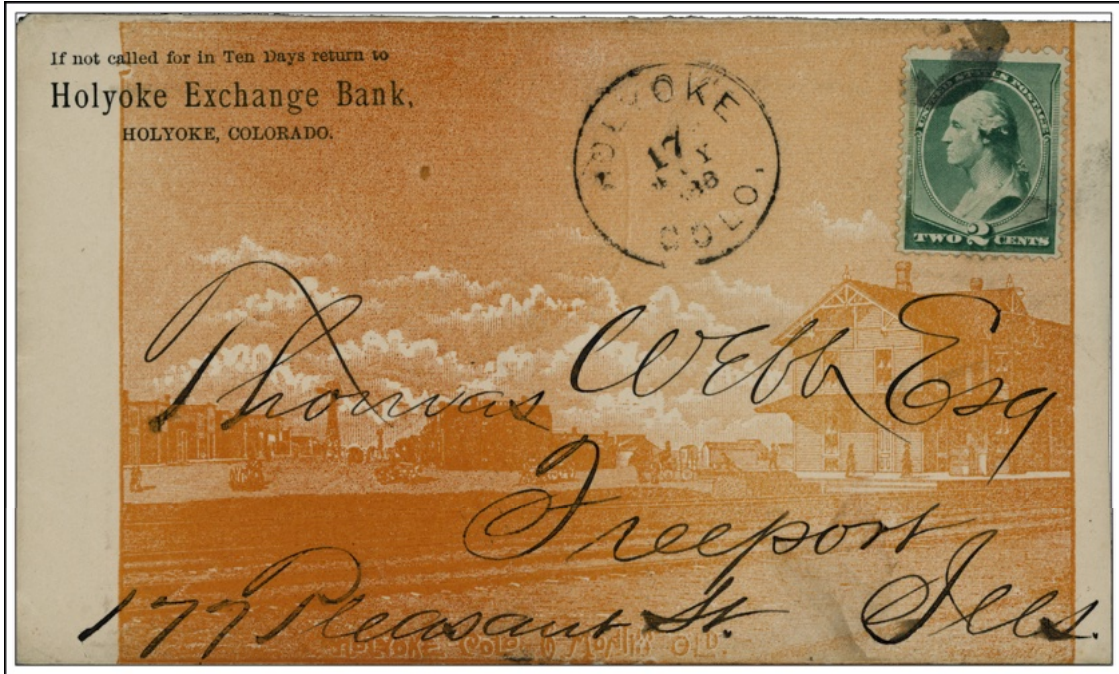 If not called for in Ten Days return to
Holyoke Exchange Bank,
HOLYOKE, COLORADO.
HOLYOKE
17
COLO.
UNITED STATES POSTAGE
TWO 2 CENTS
Thomas Webb Esq
Freeport
177 Pleasant St. Ills.
HOLYOKE, COLO. 6 MONTHS OLD.